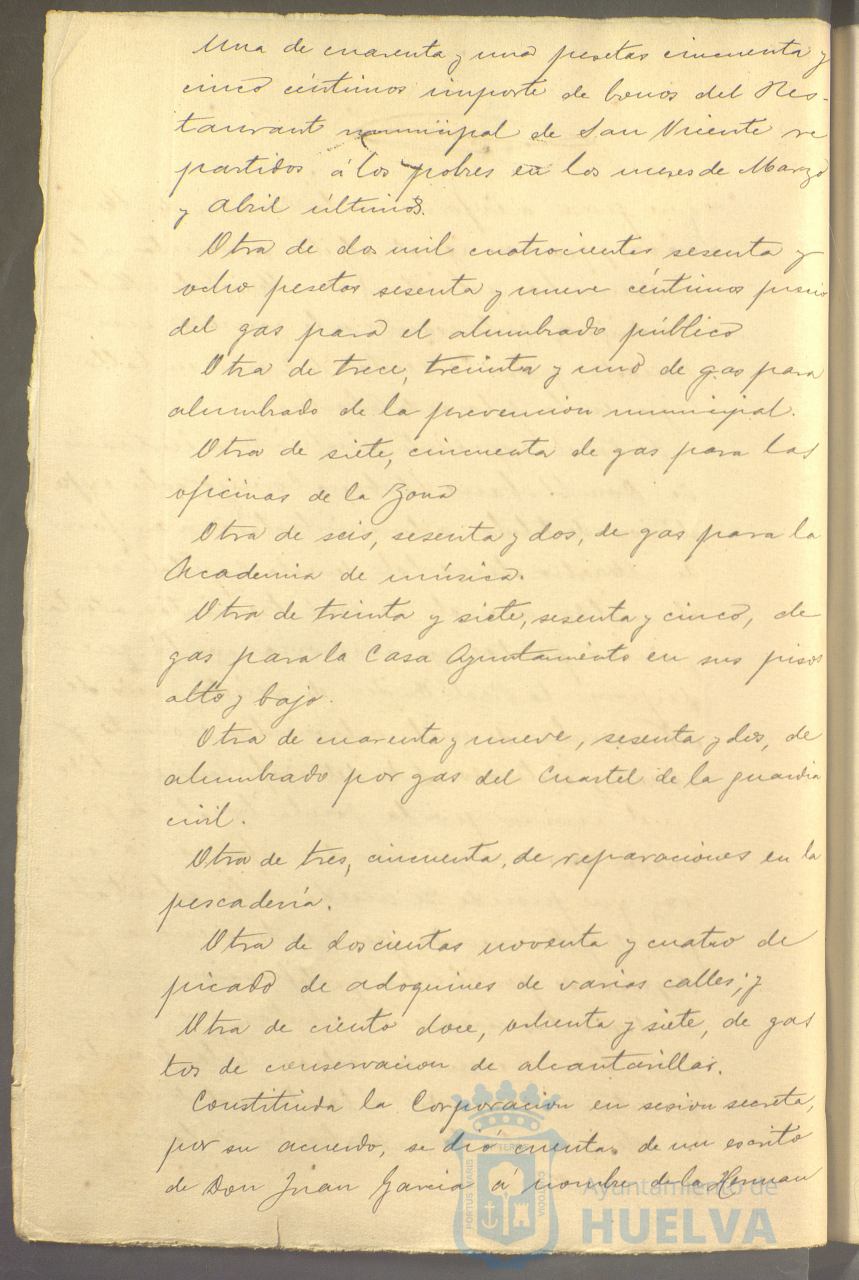 Una de cuarenta y una pesetas cincuenta y
cinco céntimos importe de bonos del Res-
taurant municipal de San Vicente re
partidos á los pobres en los meses de Marzo
y Abril últimos.
Otra de dos mil cuatrocientas sesenta y
ocho pesetas sesenta y nueve céntimos precio
del gas para el alumbrado público
Otra de trece, treinta y uno de gas para
alumbrado de la prevencion municipal.
Otra de siete, cincuenta de gas para las
oficinas de la Zona
Otra de seis, sesenta y dos, de gas para la
Academia de música.
Otra de treinta y siete, sesenta y cinco, de
gas para la Casa Ayuntamiento en sus pisos
alto y bajo.
Otra de cuarenta y nueve, sesenta y dos, de
alumbrado por gas del Cuartel de la guardia
civil.
Otra de tres, cincuenta, de reparaciones en la
pescadería.
Otra de doscientas noventa y cuatro de
picado de adoquines de varias calles; y
Otra de ciento doce, ochenta y siete, de gas
tos de conservacion de alcantarillas.
Constituida la Corporacion en sesion secreta,
por su acuerdo, se dió cuenta de un escrito
de Don Juan Garcia á nombre de la Herman
Ayuntamiento de
HUELVA
PORTUS MARIS
ET TERRAE
CUSTODIA